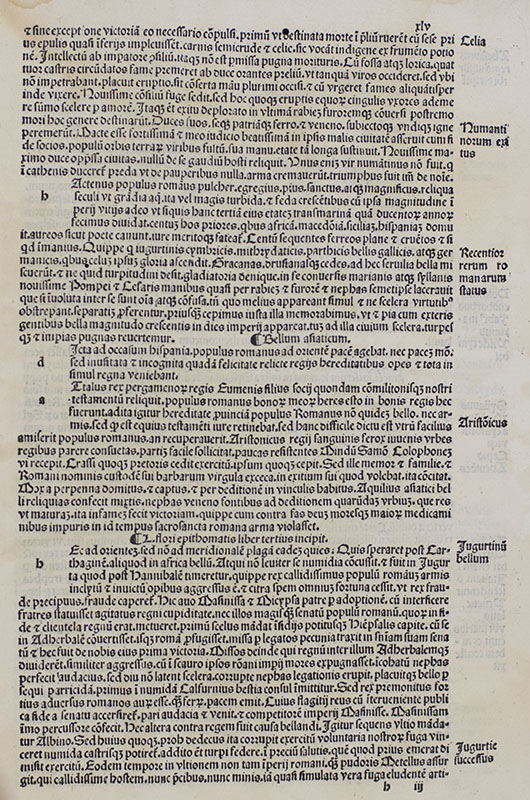 xlv
⁊ sine exceptōne victoriā eo necessario cōpulsi. primū vt destinata morte ī p̄liū ruerēt cū sese pri
us epulis quasi īferijs impleuissēt. carnis semicrude ⁊ celie. sic vocāt indigenē ex frumēto potio
nē. Intellectū ab impatore p̄siliū. itaqꝫ nō est p̄missa pugna morituris. Cū fossa atqꝫ lorica. quat
tuorqꝫ castris circūdatos fame premeret ab duce orantes preliū. vt tanquā viros occideret. sed vbi
nō impetrabant. placuit eruptio. sic cōserta manu plurimi occisi. ⁊ cū vrgeret fames aliquātisper
inde vixere. Nouissime cōsiliū fuge sedit. sed hoc quoqꝫ eruptis equoꝝ cingulis vxores ademe
re sūmo scelere ꝑ amorē. Itaqꝫ ē exitu deplorato in vltimā rabiez furoremqꝫ cōuersi postremo
mori hoc genere destinarūt. Duces suos. seqꝫ patriāqꝫ ferro. ⁊ veneno. subiectoqꝫ vndiqꝫ igne
peremerūt. Macte esse fortissimā ⁊ meo iudicio beatissimā in ipsis malis ciuitatē asseruit cum fi
de socios. populū orbis terraꝝ viribus fultū. sua manu. etate tā longa sustinuit. Nouissime ma-
ximo duce oppssa ciuitas. nullū de se gaudiū hosti reliquit. Vnus enīz vir numātinus nō fuit. qͥ
ī cathenis duceret̄. preda vt de pauperibus nulla. arma cremauerūt. triumphus fuit tm̄ de noīe.
h
Actenus populus romanus pulcher. egregius. pius. sanctus. atqꝫ magnificus. reliqua
seculi vt grādia aqꝫ. ita vel magis turbida. ⁊ feda crescētibus cū ipsa magnitudine ī
perij vitijs adeo vt siquis hanc tertiā eius etatez transmarinā quā ducentoꝝ annoꝝ
fecimus diuidat. centuz hos priores. qbus africā. macedōiā. siciliaz. hispaniaz domu
it. aureos sicut poete canunt. iure meritoqꝫ fateat̄. Centū sequentes ferreos plane ⁊ cruētos ⁊ si
qͥd īmanius. Quippe qͥ iugurtinis cymbricis. mithrydaticis. parthicis bellis gallicis. atqꝫ ger
manicis. qbus celuz ipsuz gloria ascendit. Gracanas. drusianasqꝫ cedes. ad hec seruilia bella mi
scuerūt. ⁊ ne quid turpitudini desit. gladiatoria Deniqꝫ in se conuersis marianis atqꝫ syllanis
nouissime Pompei ⁊ Cesaris manibus quasi per rabiez ⁊ furorē ⁊ nephas semetipse lacerauit
que si īuoluta inter se sunt oīa atqꝫ cōfusa. tn̄ quo melius appareant simul ⁊ ne scelera virtutibꝰ
obstrepant. separatiꝫ ꝓferentur. priusqꝫ cepimus iusta illa memorabimus. vt ⁊ pia cum exteris
gentibus bella magnitudo crescentis in dies imperij appareat. tuz ad illa ciuium scelera. turpes
qꝫ ⁊ impias pugnas reuertemur. ¶ Bellum asiaticum.
d
Icta ad occasum hispania. populus romanus ad orientē pacē agebat. nec pacez mō.
sed inusitata ⁊ incognita quadā felicitate relicte regijs hereditatibus opes ⁊ tota in
simul regna veniebant.
a
Ttalus rex pergamenoꝝ regis Eumenis filius socij quondam cōmilitonisqꝫ nostri
testamentū reliquit. populus romanus bonoꝝ meoꝝ heres esto in bonis regis hec
fuerunt. adita igitur hereditate ꝓuinciā populus Romanus nō quidez bello. nec ar-
mis. sed qͥ est equius testamēti iure retinebat. sed hanc difficile dictu est vtrū facilius
amiserit populus romanus. an recuperauerit. Aristonicus regij sanguinis ferox iuuenis vrbes
regibus parere consuetas. partiz facile sollicitat. paucas resistentes Mindū Samō Colophonez
vi recepit. Crassi quoqꝫ pretoris cedit exercitū. ipsum quoqꝫ cepit. Sed ille memor ⁊ familie. ⁊
Romani nominis custodē sui barbarum virgula exceca. in exitium sui quod volebat. ita cōcitat.
Mox a perpenna domitus. ⁊ captus. ⁊ per deditionē in vinculis habitus. Aquilius asiatici bel
li reliquias confecit mixtis. nephas veneno fontibus ad deditionem quarūdaꝫ vrbiuꝫ. que res
vt maturaz. ita infamez fecit victoriam. quippe cum contra fas deus moresqꝫ maioꝝ medicami
nibus impuris in id tempus sacrosancta romana arma violasset.
¶ L. flori epithomatis liber tertius incipit.
h
Ec ad orientez. sed nō ad meridionalē plagā eadez quies: Quis speraret post Car-
thaginē. aliquod in africa bellū. Atqui nō leuiter se numidia cōcussit. ⁊ fuit in Jugur
ta quod post Hannibalē timeretur. quippe rex callidissimus populū romanuz armis
inclytū ⁊ inuictū opibus aggressus ē. ⁊ citra spem omnium fortuna cessit. vt rex frau-
de precipuus. fraude caperet̄. Hic auo Masinissa ⁊ Micipsa patre ꝑ adoptionē. cū interficere
fratres statuisset agitatus regni cupiditate. nec illos magisqꝫ senatū populū romanū. quoꝝ in fi-
de ⁊ clientela regnū erat. metueret. primū scelus mādat īsidijs potitusqꝫ Hiēpsalis capite. cū se
in Adherbalē cōuertisset. isqꝫ romā ꝓfugisset. missa ꝑ legatos pecunia traxit in sniam suam sena
tū ⁊ hec fuit de nobis eius prima victoria. Missos deinde qui regnū inter illum Adherbalemqꝫ
diuiderēt. similiter aggressus. cū ī scauro ipsos rōani imperij mores expugnasset. icohatū nephas
perfecit audacius. sed diu nō latent scelera. corrupte nephas legationis erupit. placuitqꝫ bello ꝑ
sequi parricidā. primus ī numidiā Calfurnius bestia consul īmittitur. Sed rex premonitus for
tius aduersus romanos auꝝ esse qꝫ ferꝝ. pacem emit. Cuius flagitij reus cū iterueniente publi
ca fide a senatu accerseret̄. pari audacia ⁊ venit. ⁊ cōpetitorē imperij Masinisse. Masinissam
īmo percussore cōfecit. Hec altera contra regem fuit causa bellandi. Igitur sequens vltio māda-
tur Albino. Sed huius quoqꝫ. prob dedecus ita corrupit exercitū voluntaria nostroꝝ fuga vin-
ceret numida castrisqꝫ potiret̄. addito et̄ turpi federe. ī preciū salutis. quē quod prius emerat di
misit exercitū. Eodem tempore in vltionem non tam īperij romani. qꝫ pudoris Metellus assur
git. qui callidissime hostem. nunc p̄cibus. nunc minis. ia quasi simulata vera fuga eludentē arti-
h iij
Celia
Numanti
norum exi
tus
Recentior
rerum ro
manarum
status
Aristōicus
Jugurtinū
bellum
Jugurtie
successus